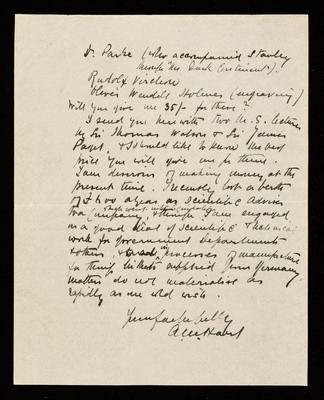 Dr. Parke (who accompanied Stanley
through "the Dark Continent").
Rudolf Virchow
Oliver Wendell Holmes (engraving)
Will you give me 35/- for these?
I send you herewith two M.S. lectures
by Sir Thomas Watson & Sir James
Paget, & should like to know the best
price you will give me for them.
I am desirous of making money at the
present time. I recently lost a berth
of £600 a year as Scientific Adviser
to a Company, & though I am engaged
in a good deal of Scientific & Technical
work for Government Departments
& others, & processes of manufacture
for things hitherto supplied from Germany,
matters do not materialise as
rapidly as one would wish.
Yours faithfully